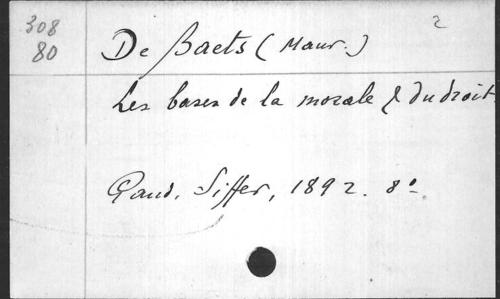 308
80
De Baets (Maur.) 2
Les bases de la morale & du droit
Gand, Siffer, 1892. 8°